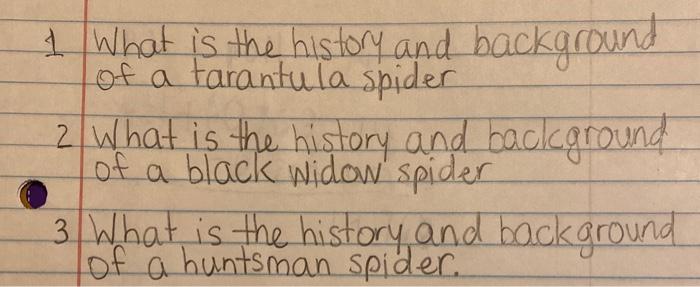 1 What is the history and background
of a tarantula spider
2 What is the history and background
of a black widow spider
3 What is the history and background
of a huntsman spider.